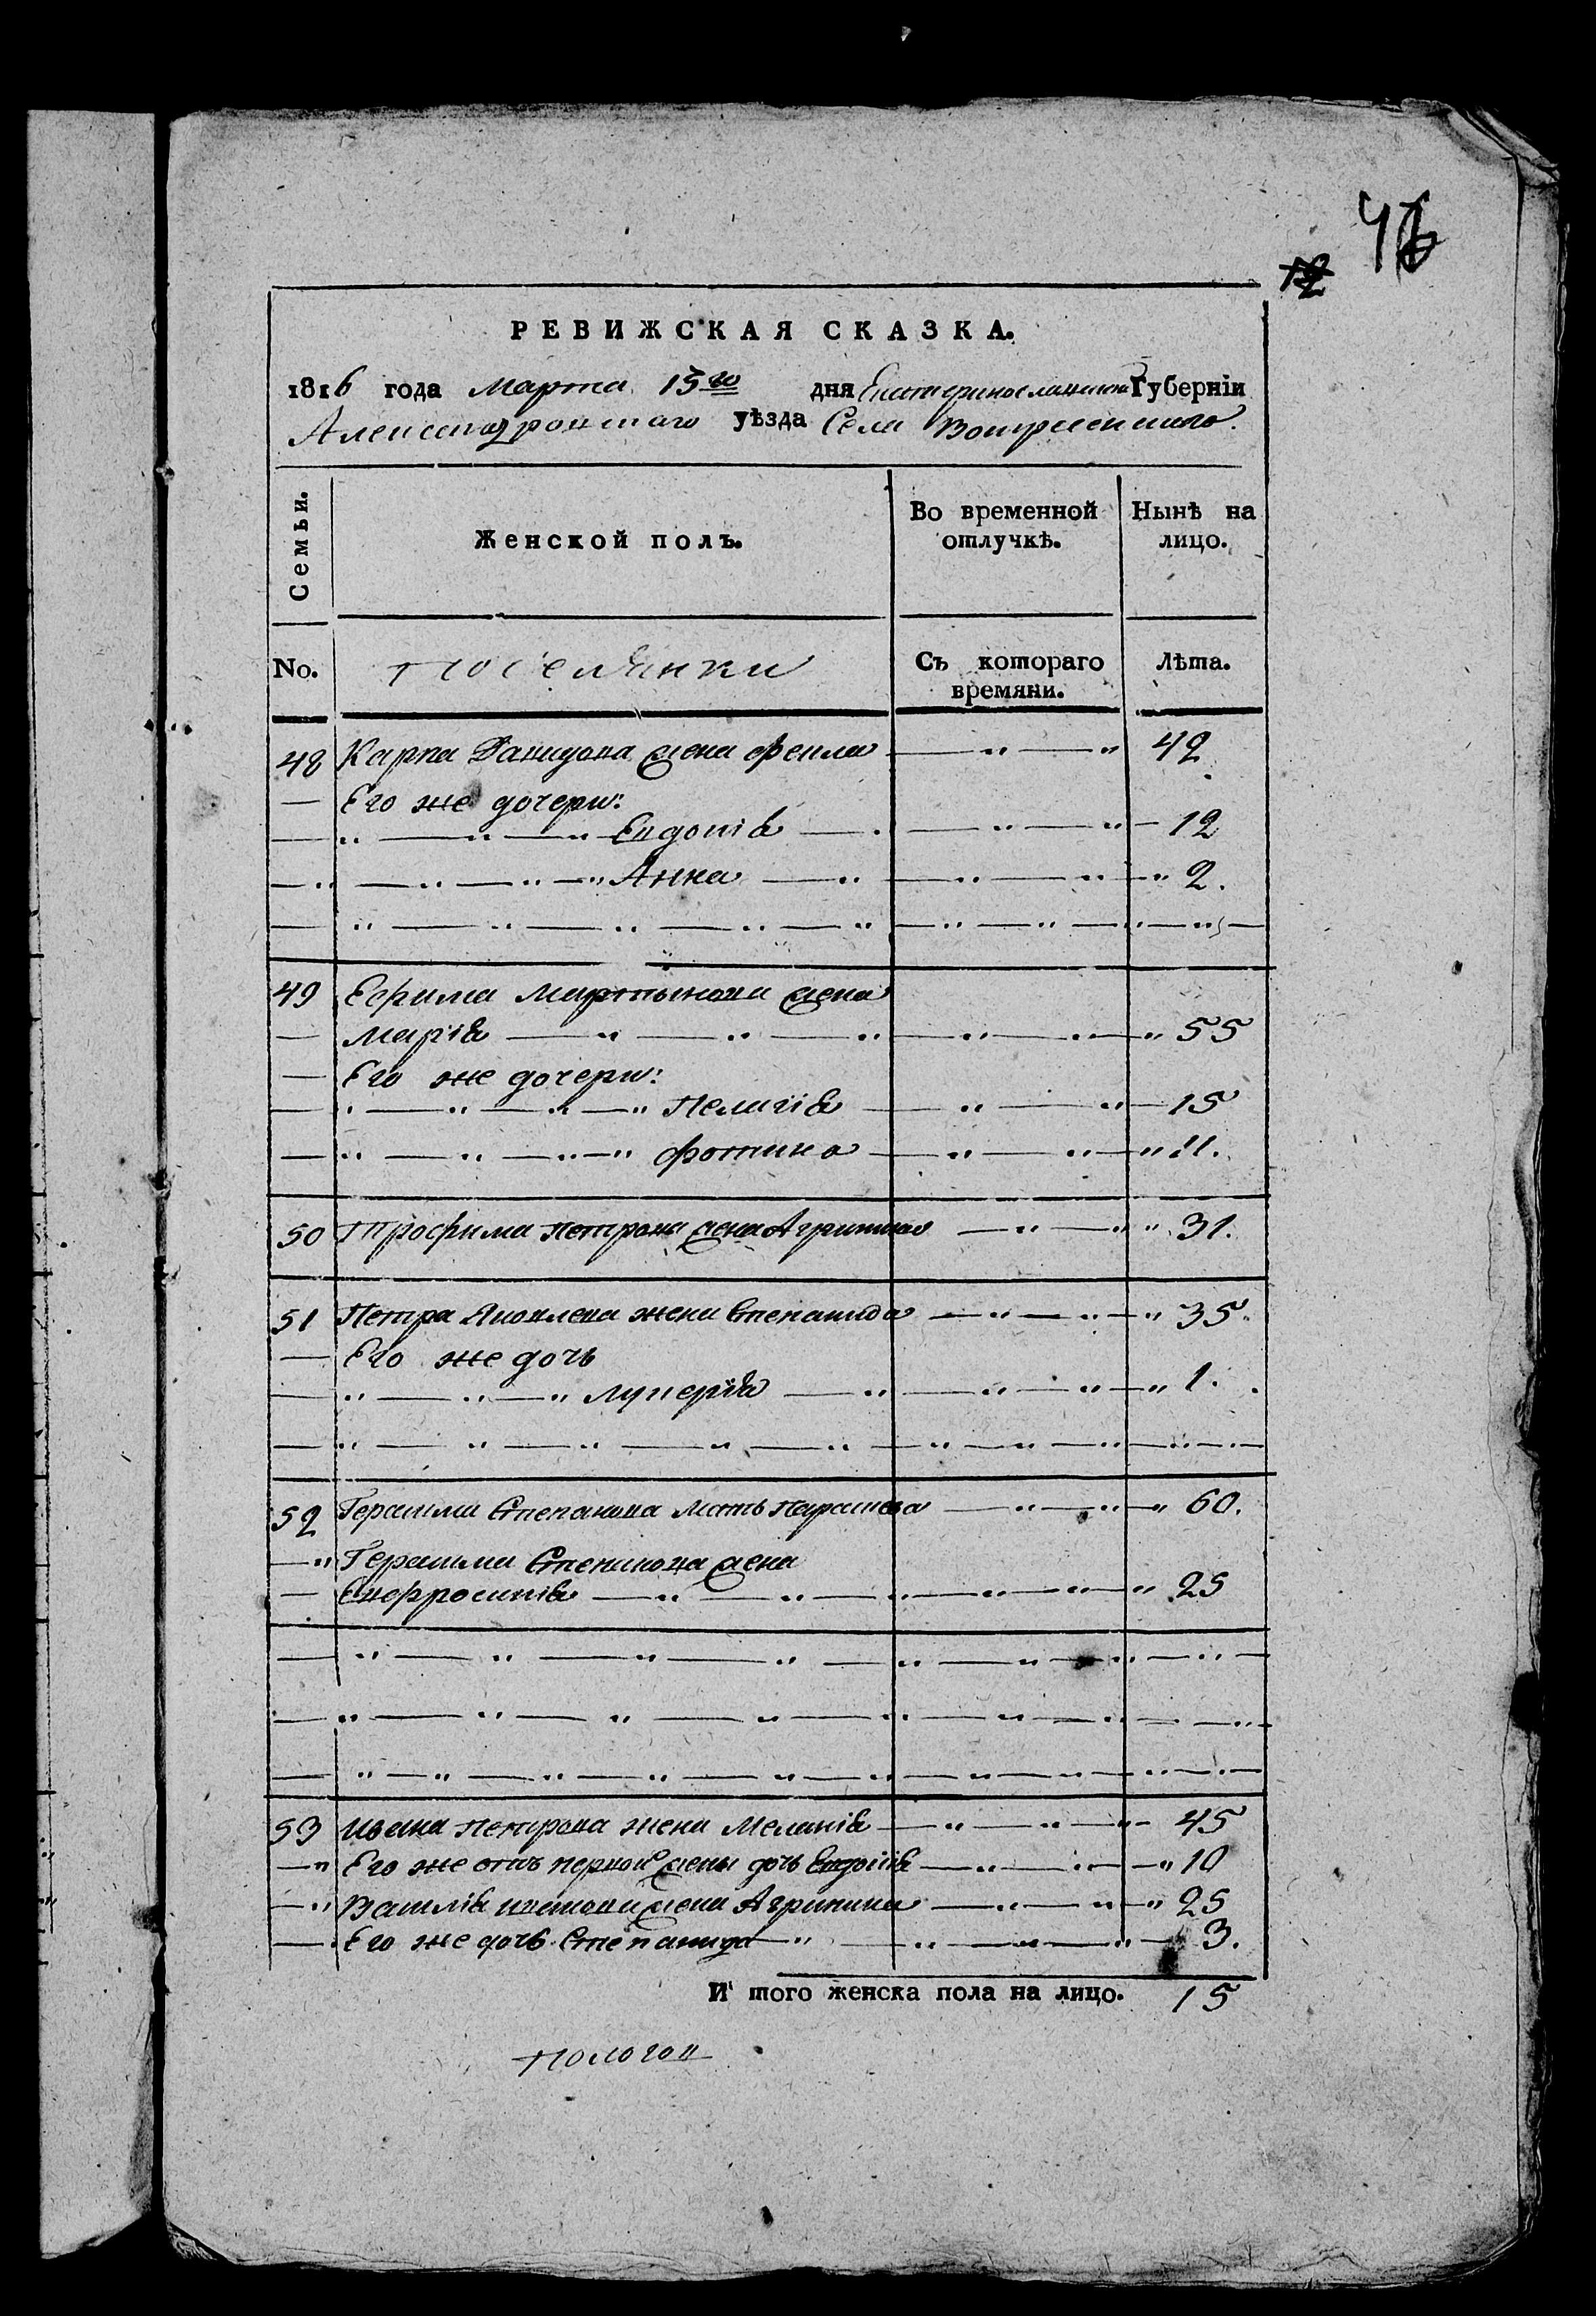 46
12
РЕВИЖСКАЯ СКАЗКА.
1816 года Марта 15го дня Екатеринославской Губерніи
Александровскаго уѣзда Села Воскресенскаго.
Семьи.
Женской полъ.
Во временной отлучкѣ.
Нынѣ на лицо.
No.
Поселянки
Съ котораго времяни.
Лѣта.
48 Карпа Давидова жена Фекла — " — " 42
— Его же дочери:
— " — " — " Евдокія — " — " — 12
— " — " — " — " Анна — " — " — " — " 2.
— " — " — " — " — " — " — " — " — " —
49 Ефима Мартынова жена
— Марія — " — " — " — " — " — " 55
— Его же дочери:
— " — " — " — " Пелагія — " — " — 15
— " — " — " — " Фотина — " — " — " 11.
50 Трофима Петрова жена Агрипина — " — " " 31.
51 Петра Яковлева жена Степанида — " — " — " 35.
— Его же дочь
— " — " — " Лукерія — " — " — " — " 1.
— " — " — " — " — " — " — " — " — " —
52 Герасима Степанова мать Параскева — " — " — " 60.
— " Герасима Степанова жена
— Ефросинія — " — " — " — " — " — " 25
— " — " — " — " — " — " — " — " —
— " — " — " — " — " — " — " — — "
— " — " — " — " — " — " — " — " — " —
53 Ивана Петрова жена Меланія — " — " — " — 45
— " Его же отъ первой жены дочь Евдокія — " — " — " 10
— " Василія Иванова жена Агрипина — " — " — " 25
— Его же дочь Степанида — " — " — " — " — 3.
И того женска пола на лицо. 15
Пологов